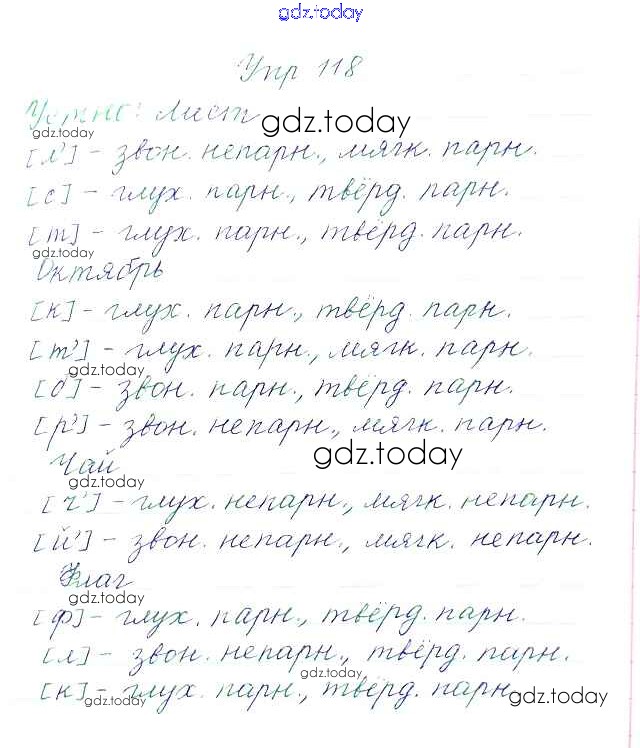 gdz.today
Упр 118
Устно: лист
gdz.today
gdz.today
[л'] - звон. непарн., мягк. парн.
[с] - глух. парн., твёрд. парн.
[т] - глух. парн., твёрд. парн.
gdz.today
Октябрь
[к] - глух. парн., твёрд. парн.
[т'] - глух. парн., мягк. парн.
gdz.today
[б] - звон. парн., твёрд. парн.
[р'] - звон. непарн., мягк. парн.
gdz.today
Чай
gdz.today
[ч'] - глух. непарн., мягк. непарн.
[й'] - звон. непарн., мягк. непарн.
Флаг
gdz.today
[ф] - глух. парн., твёрд. парн.
[л] - звон. непарн., твёрд. парн.
[к] - глух. парн., твёрд. парн
gdz.today
gdz.today